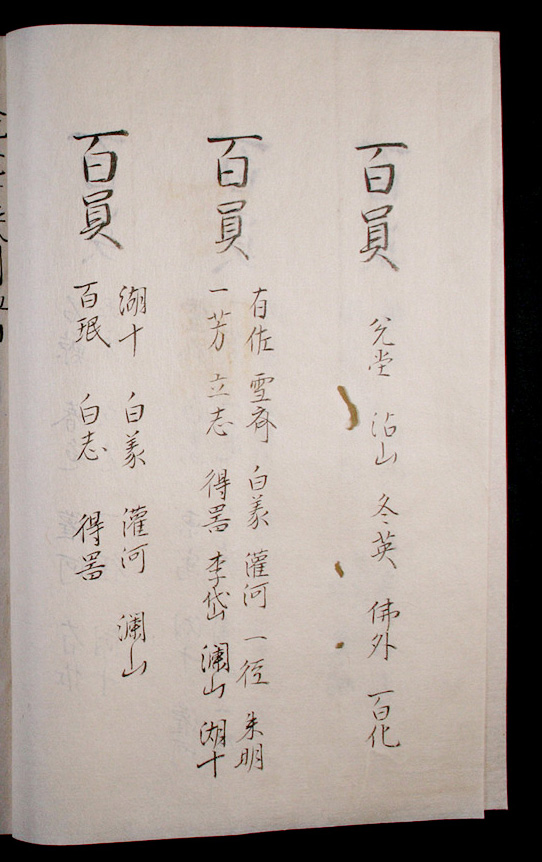 百員
允堂 沾山 冬英 佛外 百化
百員
有佐 雪斎 白羕 灌河 一徑 朱明
一芳 立志 得器 李岱 瀾山 湖十
百員
湖十 白羕 灌河 瀾山
百珉 白志 得器